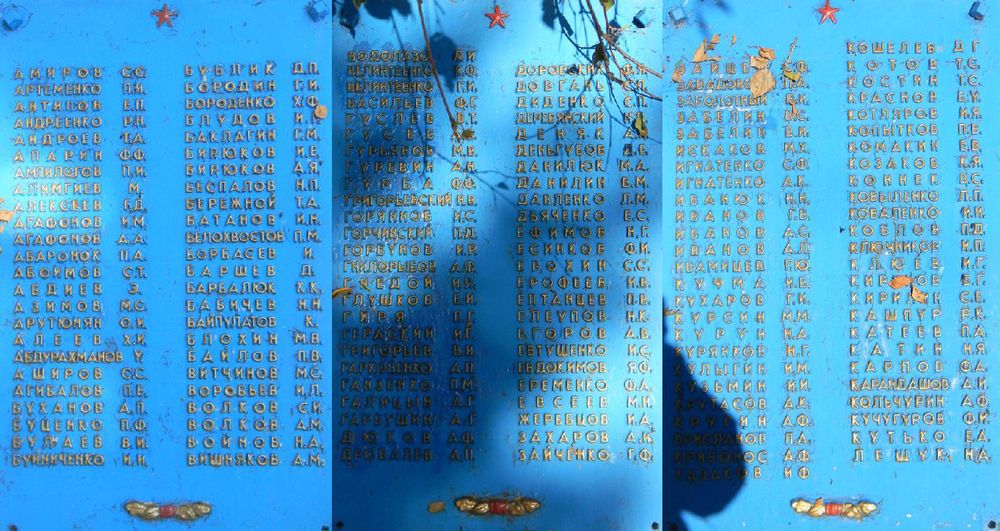 АМИРОВ С.С.
АРТЕМЕНКО П.И.
АНТИПОВ Е.П.
АНДРЕЕНКО Р.Н.
АНДРОЕВ Т.А.
АПАРИН Ф.Ф.
АМПИЛОГОВ П.И.
АЛИМГИЕВ М.
АЛЕКСЕЕВ Г.Д.
АГАФОНОВ И.М.
АГАФОНОВ А.А.
АБАРОНОК П.А.
АБОИМОВ С.Т.
АВДИЕВ Э.
АЗИМОВ М.С.
АРУТЮНЯН О.И.
АЛЕЕВ Х.И.
АБДУРАХМАНОВ У.
АШИРОВ С.С.
АГИБАЛОВ П.Е.
БУХАНОВ А.П.
БУЦЕНКО П.Ф.
БУЛАЕВ В.И.
БУЙНИЧЕНКО И.И.
БУБЛИК Д.П.
БОРОДИН Г.И.
БОРОДЕНКО Х.Ф.
БЛУДОВ И.П.
БАКЛАГИН Г.М.
БИРЮКОВ И.Е.
БИРЮКОВ А.Я.
БЕСПАЛОВ Н.П.
БЕРЕЖНОЙ Т.А.
БАТАНОВ И.Н.
БЕЛОХВОСТОВ П.М.
БОРБАСЕВ И.
БАРШЕВ Д.
БАРБАЛЮК К.К.
БАБИЧЕВ Н.Н.
БАЙПУЛАТОВ К.
БЛОХИН М.В.
БАЙЛОВ П.В.
ВИТЧИНОВ М.С.
ВОРОБЬЕВ И.Л.
ВОЛКОВ С.И.
ВОЛКОВ А.М.
ВОЙНОВ Н.А.
ВИШНЯКОВ А.М.
ВОДОЛАЗО
ВЕЛИНТЕЕНКО К.Ф.
ВЕЛИНТЕЕНКО Г.И.
ВАСИЛЬЕВ Ф.Г.
ГУСЛЕВ В.Т.
ГУСЕВ
ГУРЬЯНОВ М.Е.
ГУРЕВИЧ А.Н.
ГУРБА Ф.Ф.
ГРИГОРЬЕВСКИЙ Н.В.
ГОРЯННОЕ И.С.
ГОРЧИНСКИЙ П.Д.
ГОРБУНОВ И.Р.
ГНИЛОРЫБОВ А.Ф.
ГНЕДОЙ И.Я.
ГЛУШКОВ Е.И.
ГИРЯ П.Г.
ГЕРАСКИН И.Г.
ГРИГОРЬЕВ В.И.
ГАРКОВЕНКО А.П.
ГАНЗЕНКО П.М.
ГАЛИЦЫН А.Г.
ГАРБУШИН А.Г.
ДЮКОВ А.Ф.
ДРОБАЛЕВ А.П.
ДОРОВСКИЙ Ф.Я.
ДОВГАНЬ С.Я.
ДИДЕНКО С.П.
ДЕРЕВЯНСКИЙ
ДЕНЯК А.
ДЕНЬГУБОВ Д.Е.
ДАНИЛЮК М.А.
ДАНИЛИН В.М.
ДАВЛЕНКО Л.М.
ДЬЯЧЕНКО Е.С.
ЕФИМОВ Н.Г.
ЕСИПКОВ Ф.И.
ЕРОХИН С.С.
ЕРОФЕЕВ И.Е.
ЕПТАНЦЕВ П.Е.
ЕЛЕУПОВ Н.К.
ЕГОРОВ А.В.
ЕВТУШЕНКО И.С.
ЕВДОКИМОВ Я.Ф.
ЕРЕМЕНКО Ф.А.
ЕВСЕЕВ М.Н.
ЖЕРЕБЦОВ И.А.
ЗАХАРОВ А.И.
ЗАЙЧЕНКО Г.Ф.
ЗАВАДОВСКИЙ
ЗАБОЛОТНЫЙ
ЗАБЕЛИН
ЗАБЕЛИЙ
ИСКАКОВ М.Х.
ИГНАТЕНКО С.Ф.
ИГНАТЕНКО А.К.
ИВАНЮК Н.Н.
ИВАНОВ Г.В.
ИВАНОВ А.С.
ИВАНОВ А.Л.
ИВАНИЦЕВ Г.Ю.
КУЧМА И.Е.
КУХАРОВ Г.И.
КУРСИН М.М.
КУРУН Н.А.
КУРЯНКОВ Н.Г.
КУЛЫГИН И.М.
КУЗЬМИН И.И.
КРУГАСОВ А.К.
КРУГИН А.Ф.
КРИСПАНОВ П.А.
КРИВОНОС А.Ф.
КАЗАКОВ И.Ф.
КОШЕЛЕВ Д.Г.
КОТОВ Т.С.
КОСТИН Т.С.
КРАСНОВ Б.У.
КОТЛЯРОВ И.Я.
КОПЫТКОВ П.Е.
КОМАКИН Е.В.
КОЗАКОВ К.Я.
КОННЕК В.С.
КОВЫЛЕНКО Л.П.
КОВАЛЕНКО И.И.
КОБЛОВ П.Д.
КЛЮЧНИКОВ И.П.
КЛЮЕВ И.Г.
КИРИЛИН С.Е.
КАШПУР Р.К.
КАТЕЕВ П.А.
КАТИН Н.Я.
КАРПОВ Ф.А.
КАРАНДАШОВ А.И.
КОЛЬЧУРИН А.Ф.
КУЧУГУРОВ Ф.И.
КУТЬКО Е.А.
ЛЕЩУК Н.А.